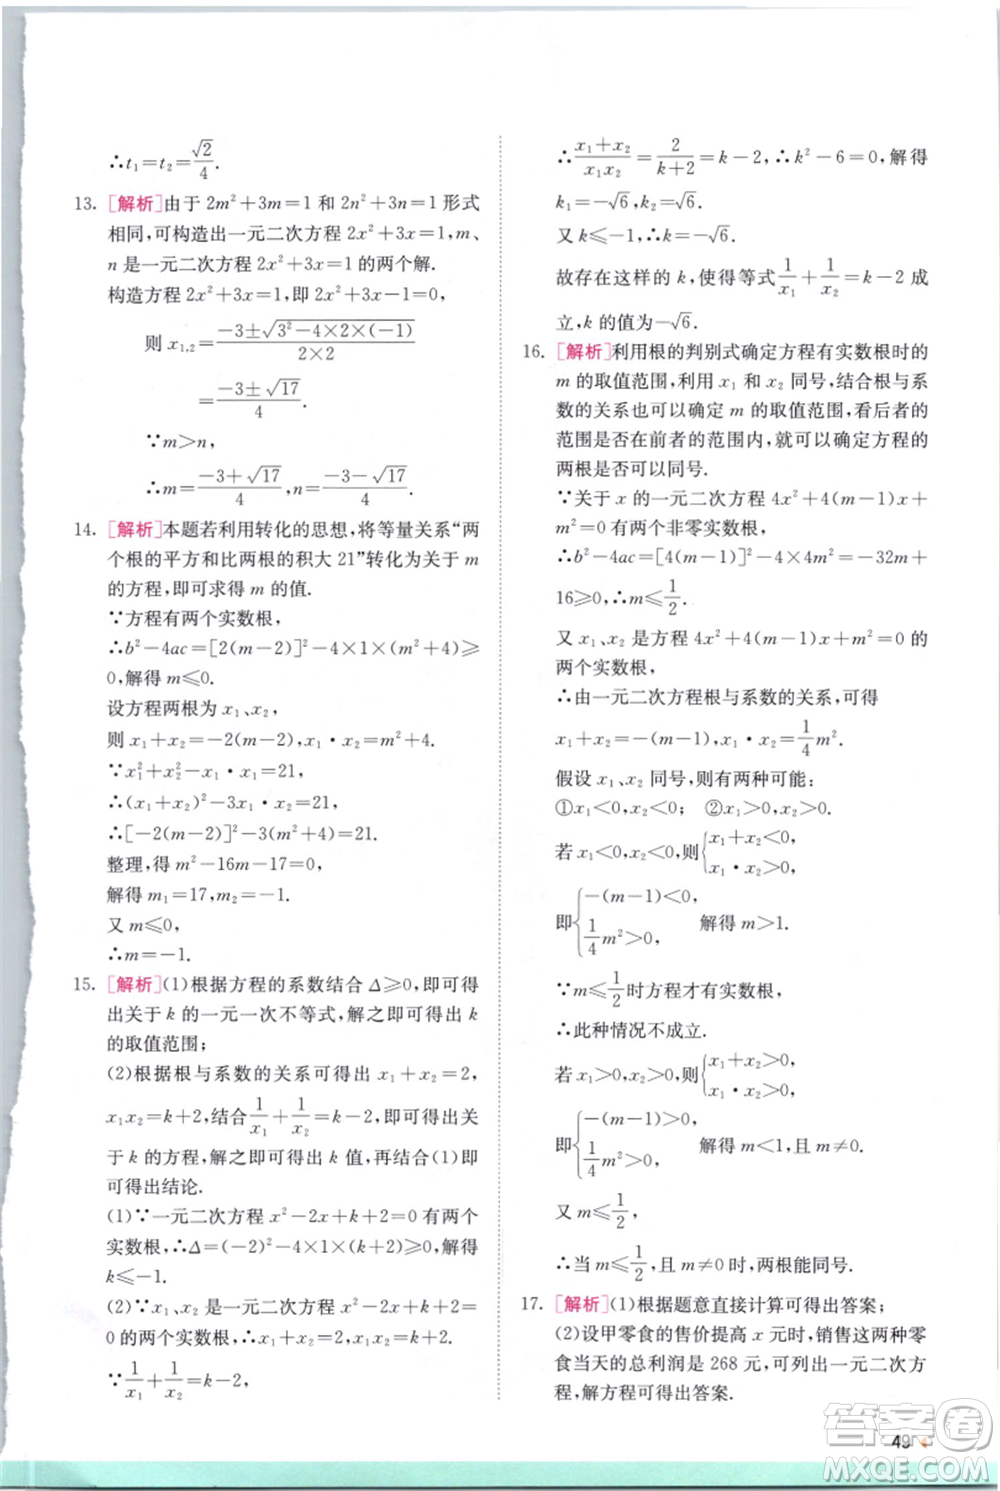 ∴t₁=t₂=√2/4.
13. [解析]由于 2m²+3m=1 和 2n²+3n=1 形式
相同,可构造出一元二次方程 2x²+3x=1,m、
n 是一元二次方程 2x²+3x=1 的两个解.
构造方程 2x²+3x=1,即 2x²+3x-1=0,
则 x₁,₂=(-3±√(3²-4×2×(-1)))/(2×2)
=(-3±√17)/4.
∵m>n,
∴m=(-3+√17)/4,n=(-3-√17)/4.
14. [解析]本题若利用转化的思想,将等量关系“两
个根的平方和比两根的积大 21”转化为关于 m
的方程,即可求得 m 的值.
∵方程有两个实数根,
∴b²-4ac=[2(m-2)]²-4×1×(m²+4)≥
0,解得 m≤0.
设方程两根为 x₁、x₂,
则 x₁+x₂=-2(m-2),x₁·x₂=m²+4.
∵x₁²+x₂²-x₁·x₂=21,
∴(x₁+x₂)²-3x₁·x₂=21,
∴[-2(m-2)]²-3(m²+4)=21.
整理,得 m²-16m-17=0,
解得 m₁=17,m₂=-1.
又 m≤0,
∴m=-1.
15. [解析](1)根据方程的系数结合 Δ≥0,即可得
出关于 k 的一元一次不等式,解之即可得出 k
的取值范围;
(2)根据根与系数的关系可得出 x₁+x₂=2,
x₁x₂=k+2,结合1/x₁+1/x₂=k-2,即可得出关
于 k 的方程,解之即可得出 k 值,再结合(1)即
可得出结论.
(1)∵一元二次方程 x²-2x+k+2=0 有两个
实数根,∴Δ=(-2)²-4×1×(k+2)≥0,解得
k≤-1.
(2)∵x₁、x₂ 是一元二次方程 x²-2x+k+2=
0 的两个实数根,∴x₁+x₂=2,x₁x₂=k+2.
∵1/x₁+1/x₂=k-2,
∴(x₁+x₂)/(x₁x₂)=2/(k+2)=k-2,∴k²-6=0,解得
k₁=-√6,k₂=√6.
又 k≤-1,∴k=-√6.
故存在这样的 k,使得等式1/x₁+1/x₂=k-2 成
立,k 的值为-√6.
16. [解析]利用根的判别式确定方程有实数根时的
m 的取值范围,利用 x₁ 和 x₂ 同号,结合根与系
数的关系也可以确定 m 的取值范围,看后者的
范围是否在前者的范围内,就可以确定方程的
两根是否可以同号.
∵关于 x 的一元二次方程 4x²+4(m-1)x+
m²=0 有两个非零实数根,
∴b²-4ac=[4(m-1)]²-4×4m²=-32m+
16≥0,∴m≤1/2.
又 x₁、x₂ 是方程 4x²+4(m-1)x+m²=0 的
两个实数根,
∴由一元二次方程根与系数的关系,可得
x₁+x₂=-(m-1),x₁·x₂=1/4m².
假设 x₁、x₂ 同号,则有两种可能:
①x₁<0,x₂<0; ②x₁>0,x₂>0.
若 x₁<0,x₂<0,则{x₁+x₂<0,
x₁·x₂>0,
即{-(m-1)<0,
1/4m²>0, 解得 m>1.
∵m≤1/2时方程才有实数根,
∴此种情况不成立.
若 x₁>0,x₂>0,则{x₁+x₂>0,
x₁·x₂>0,
即{-(m-1)>0,
1/4m²>0, 解得 m<1,且 m≠0.
又 m≤1/2,
∴当 m≤1/2,且 m≠0 时,两根能同号.
17. [解析](1)根据题意直接计算可得出答案;
(2)设甲零食的售价提高 x 元时,销售这两种零
食当天的总利润是 268 元,可列出一元二次方
程,解方程可得出答案.
49
答案圈
MXQE.COM